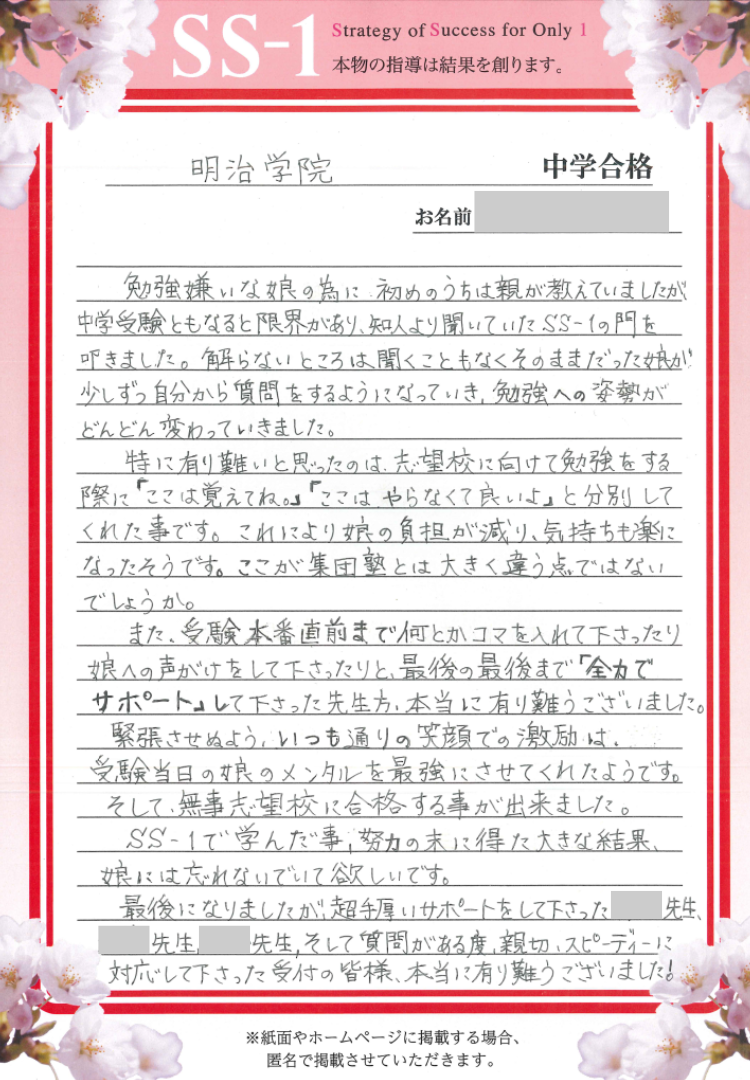 SS-1
Strategy of Success for Only 1
本物の指導は結果を創ります。
明治学院 中学合格
お名前
勉強嫌いな娘の為に 初めのうちは親が教えていましたが、
中学受験ともなると限界があり、知人より聞いていたSS-1の門を
叩きました。解らないところは、聞くこともなくそのままだった娘が
少しずつ自分から質問をするようになっていき、勉強への姿勢が
どんどん変わっていきました。
特に有り難いと思ったのは、志望校に向けて勉強をする
際に「ここは覚えてね。」「ここは、やらなくて良いよ」と分別して
くれた事です。これにより娘の負担が減り、気持ちも楽に
なったそうです。ここが集団塾とは大きく違う点ではない
でしょうか。
また、受験本番直前まで何とかコマを入れて下さったり
娘への声がけをして下さったりと、最後の最後まで「全力で
サポート」して下さった先生方、本当に有り難うございました。
緊張させぬよう、いつも通りの笑顔での激励は、
受験当日の娘のメンタルを最強にさせてくれたようです。
そして、無事志望校に合格する事が出来ました。
SS-1で学んだ事、努力の末に得た大きな結果、
娘には忘れないでいて欲しいです。
最後になりましたが、超手厚いサポートをして下さった 先生、
先生、 先生、そして質問がある度、親切、スピーディーに
対応して下さった受付の皆様、本当に有り難うございました!
※紙面やホームページに掲載する場合、
匿名で掲載させていただきます。